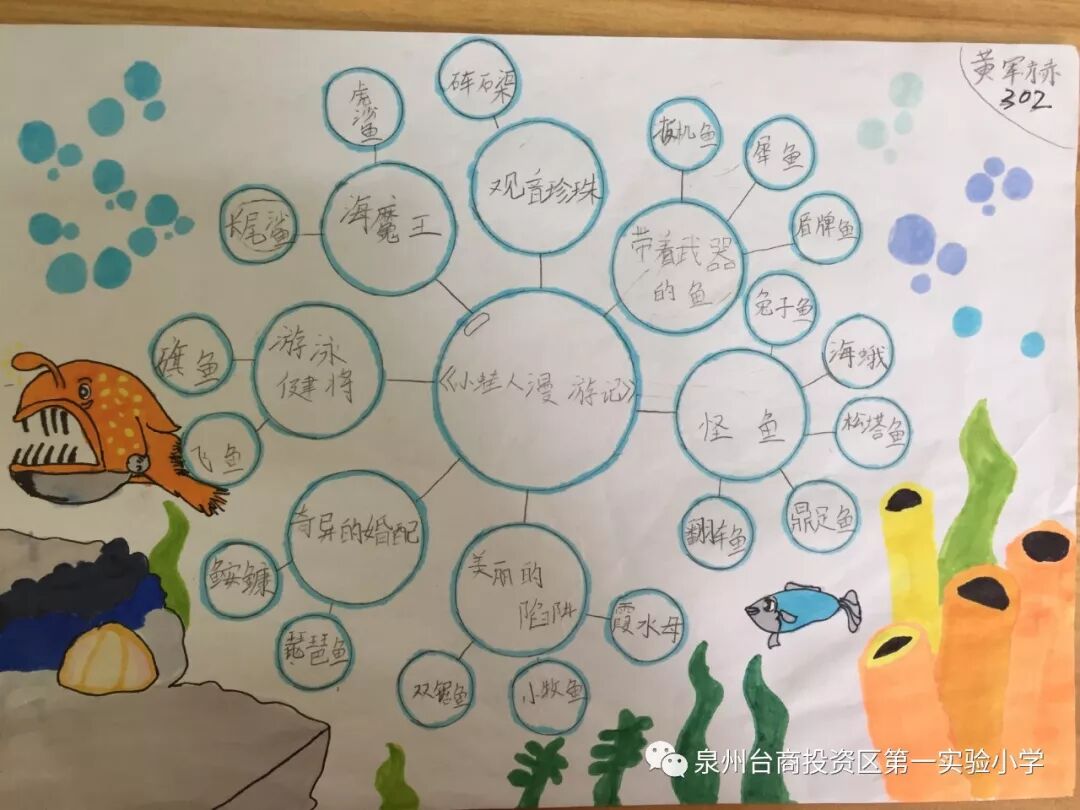 黄军赫
302
《小蛙人漫游记》
观音珍珠
砗石渠
带着武器
的鱼
板机鱼
犀鱼
盾牌鱼
怪鱼
兔子鱼
海蛾
松塔鱼
鼎足鱼
翻车鱼
美丽的
陷阱
霞水母
小牧鱼
双锯鱼
奇异的婚配
鮟鱇
琵琶鱼
游泳
健将
旗鱼
飞鱼
海魔王
长尾鲨
虎鲨鱼
泉州台商投资区第一实验小学